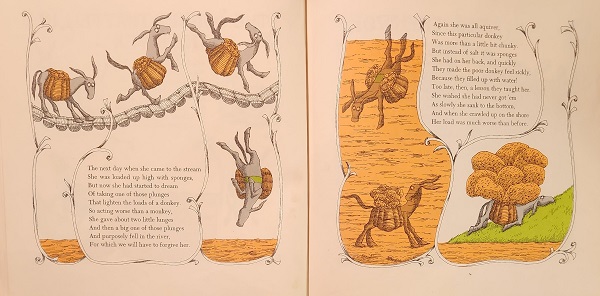 The next day when she came to the stream
She was loaded up high with sponges,
But now she had started to dream
Of taking one of those plunges
That lighten the loads of a donkey
So acting worse than a monkey,
She gave about two little lunges
And then a big one of those plunges
And purposely fell in the river,
For which we will have to forgive her.
Again she was all aquiver,
Since this particular donkey
Was more than a little bit chunky.
But instead of salt it was sponges
She had on her back, and quickly
They made the poor donkey feel sickly,
Because they filled up with water!
Too late, then, a lesson they taught her.
She wished she had never got 'em
As slowly she sank to the bottom,
And when she crawled up on the shore
Her load was much worse than before.